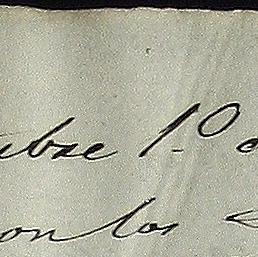 ubre 1.º
con los